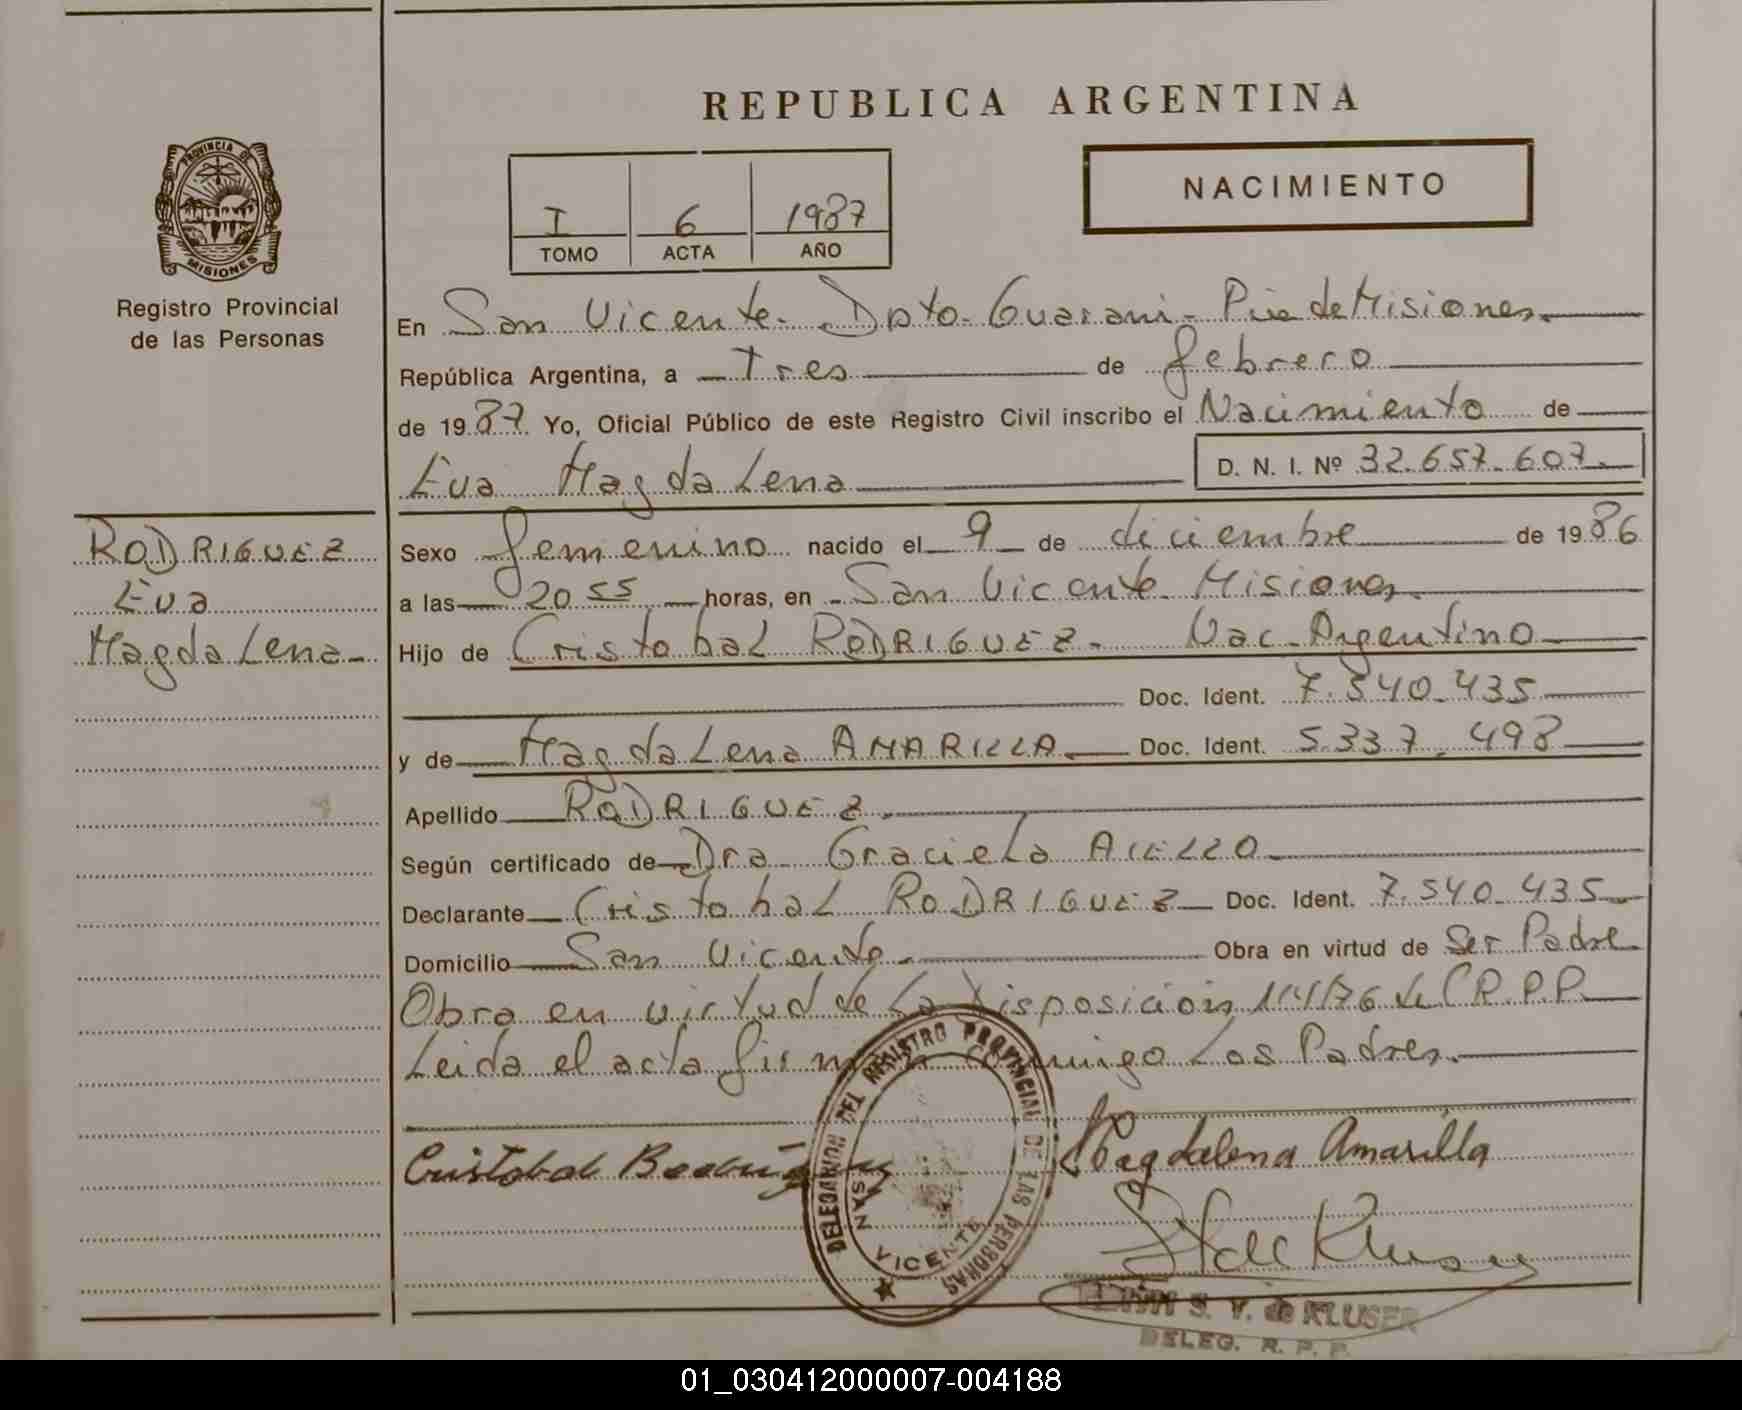 REPUBLICA ARGENTINA
PROVINCIA DE
MISIONES
Registro Provincial
de las Personas
I 6 1987
TOMO ACTA AÑO
NACIMIENTO
En San Vicente - Dpto. Guarani - Pcia de Misiones.
República Argentina, a Tres de febrero
de 1987. Yo, Oficial Público de este Registro Civil inscribo el Nacimiento de
Eva Magdalena D. N. I. Nº 32.657.607.
RODRIGUEZ
Eva
Magdalena
Sexo femenino nacido el 9 de diciembre de 1986
a las 20 55 horas, en San Vicente Misiones.
Hijo de Cristobal RODRIGUEZ. Nac. Argentino
Doc. Ident. 7.540.435
y de Magdalena AMARILLA. Doc. Ident. 5.337.498
Apellido RODRIGUEZ.
Según certificado de Dra Graciela
Declarante Cristobal RODRIGUEZ Doc. Ident. 7.540.435
Domicilio San Vicente. Obra en virtud de Ser Padre
Obra en virtud de la Disposición 114/76 de
Leida el acta firman conmigo Los Padres.
DELEGACION DEL REGISTRO PROVINCIAL DE LAS PERSONAS
SAN VICENTE
Cristobal
Magdalena Amarilla
S. V. de KLUSER
DELEG. R. P. P.
01_030412000007-004188